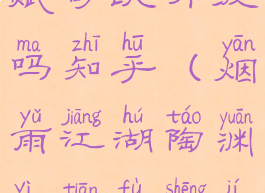 ma zhī hū yān
吗知乎(烟
yǔ jiāng hú táo yuān
雨江湖陶渊
yì tiān fù shēng jí